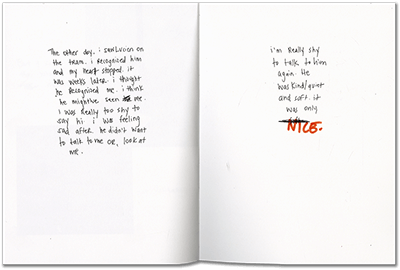 The other day. i saw Lucien on
the tram. i recognised him
and my heart stopped. it
was weeks later. i thought
he recognised me. i think
he might've seen me.
i was really too shy to
say hi. i was feeling
sad after. he didn't want
to talk to me or, look at
me.
i'm really shy
to talk to him
again. He
was kind/quiet
and soft. it
was only
NICE.